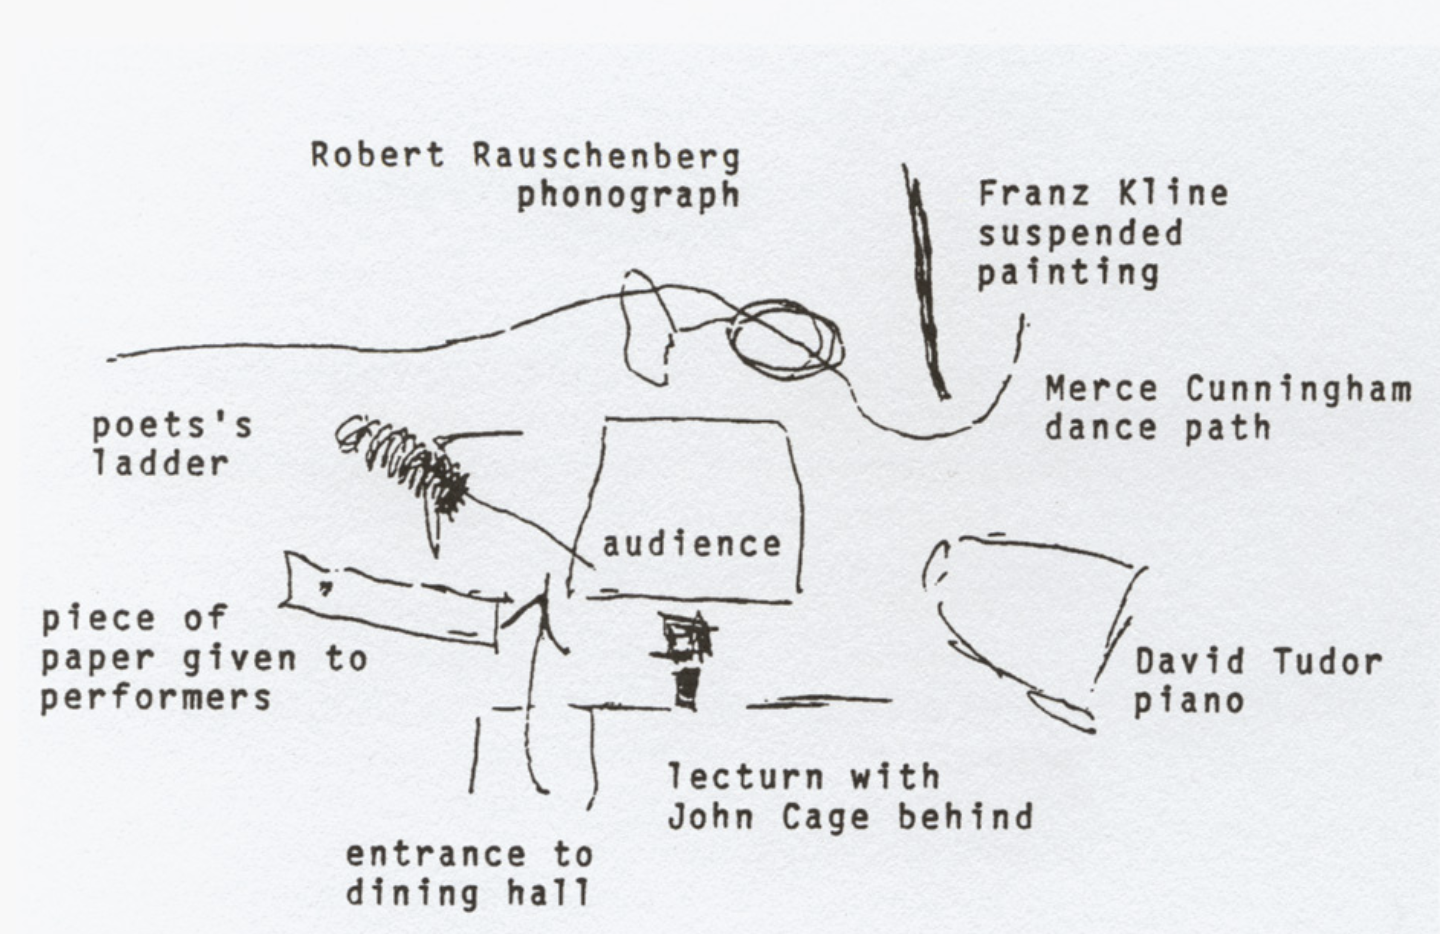 Robert Rauschenberg
phonograph
Franz Kline
suspended
painting
Merce Cunningham
dance path
poets's
ladder
audience
piece of
paper given to
performers
David Tudor
piano
lecturn with
John Cage behind
entrance to
dining hall